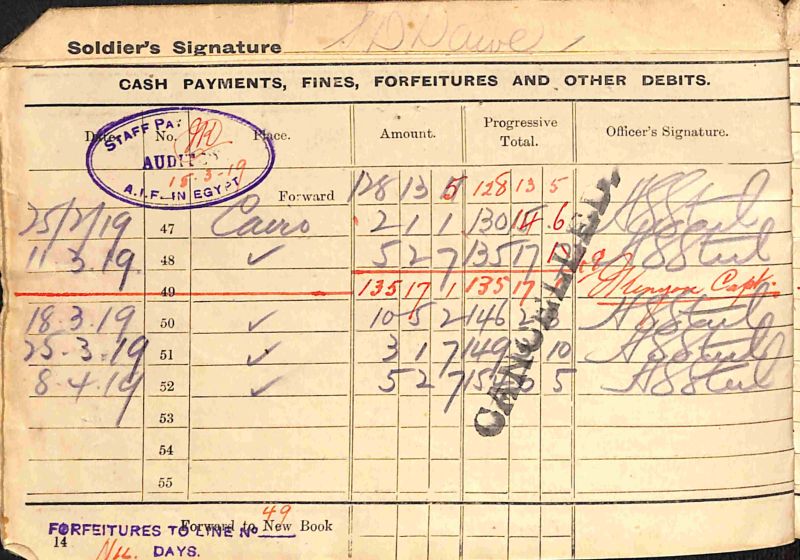 Soldier's Signature S D Dawe
CASH PAYMENTS, FINES, FORFEITURES AND OTHER DEBITS.
Date. No. Place. Amount. Progressive Total. Officer's Signature.
STAFF PAY
AUDIT
15-3-19
A.I.F. IN EGYPT
Forward 128 13 5 128 13 5
25/2/19 47 Cairo 2 1 1 130 6
11.3.19. 48 ✓ 5 2 7 135 17
49 135 17 1 135 17 Capt.
18.3.19 50 ✓ 10 5 2 146 2
25.3.19 51 ✓ 3 1 7 149 10
8.4.19 52 ✓ 5 2 7 5
53
54
55
CANCELLED.
Forward to New Book
FORFEITURES TO LINE No 49
14 Nil DAYS.